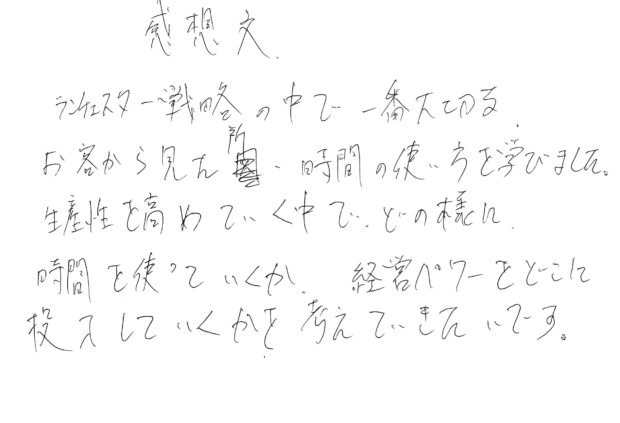 感想文.
ランチェスター戦略の中で一番大切な
お客から見た所・時間の使い方を学びました。
生産性を高めていく中で、どの様に
時間を使っていくか、経営パワーをどこに
投入していくかを考えていきたいです。